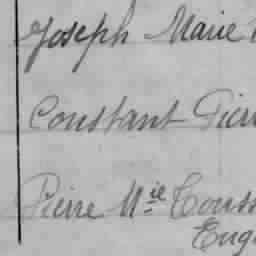 Joseph Marie
Constant Pier
Pierre Mie Touss
Eug